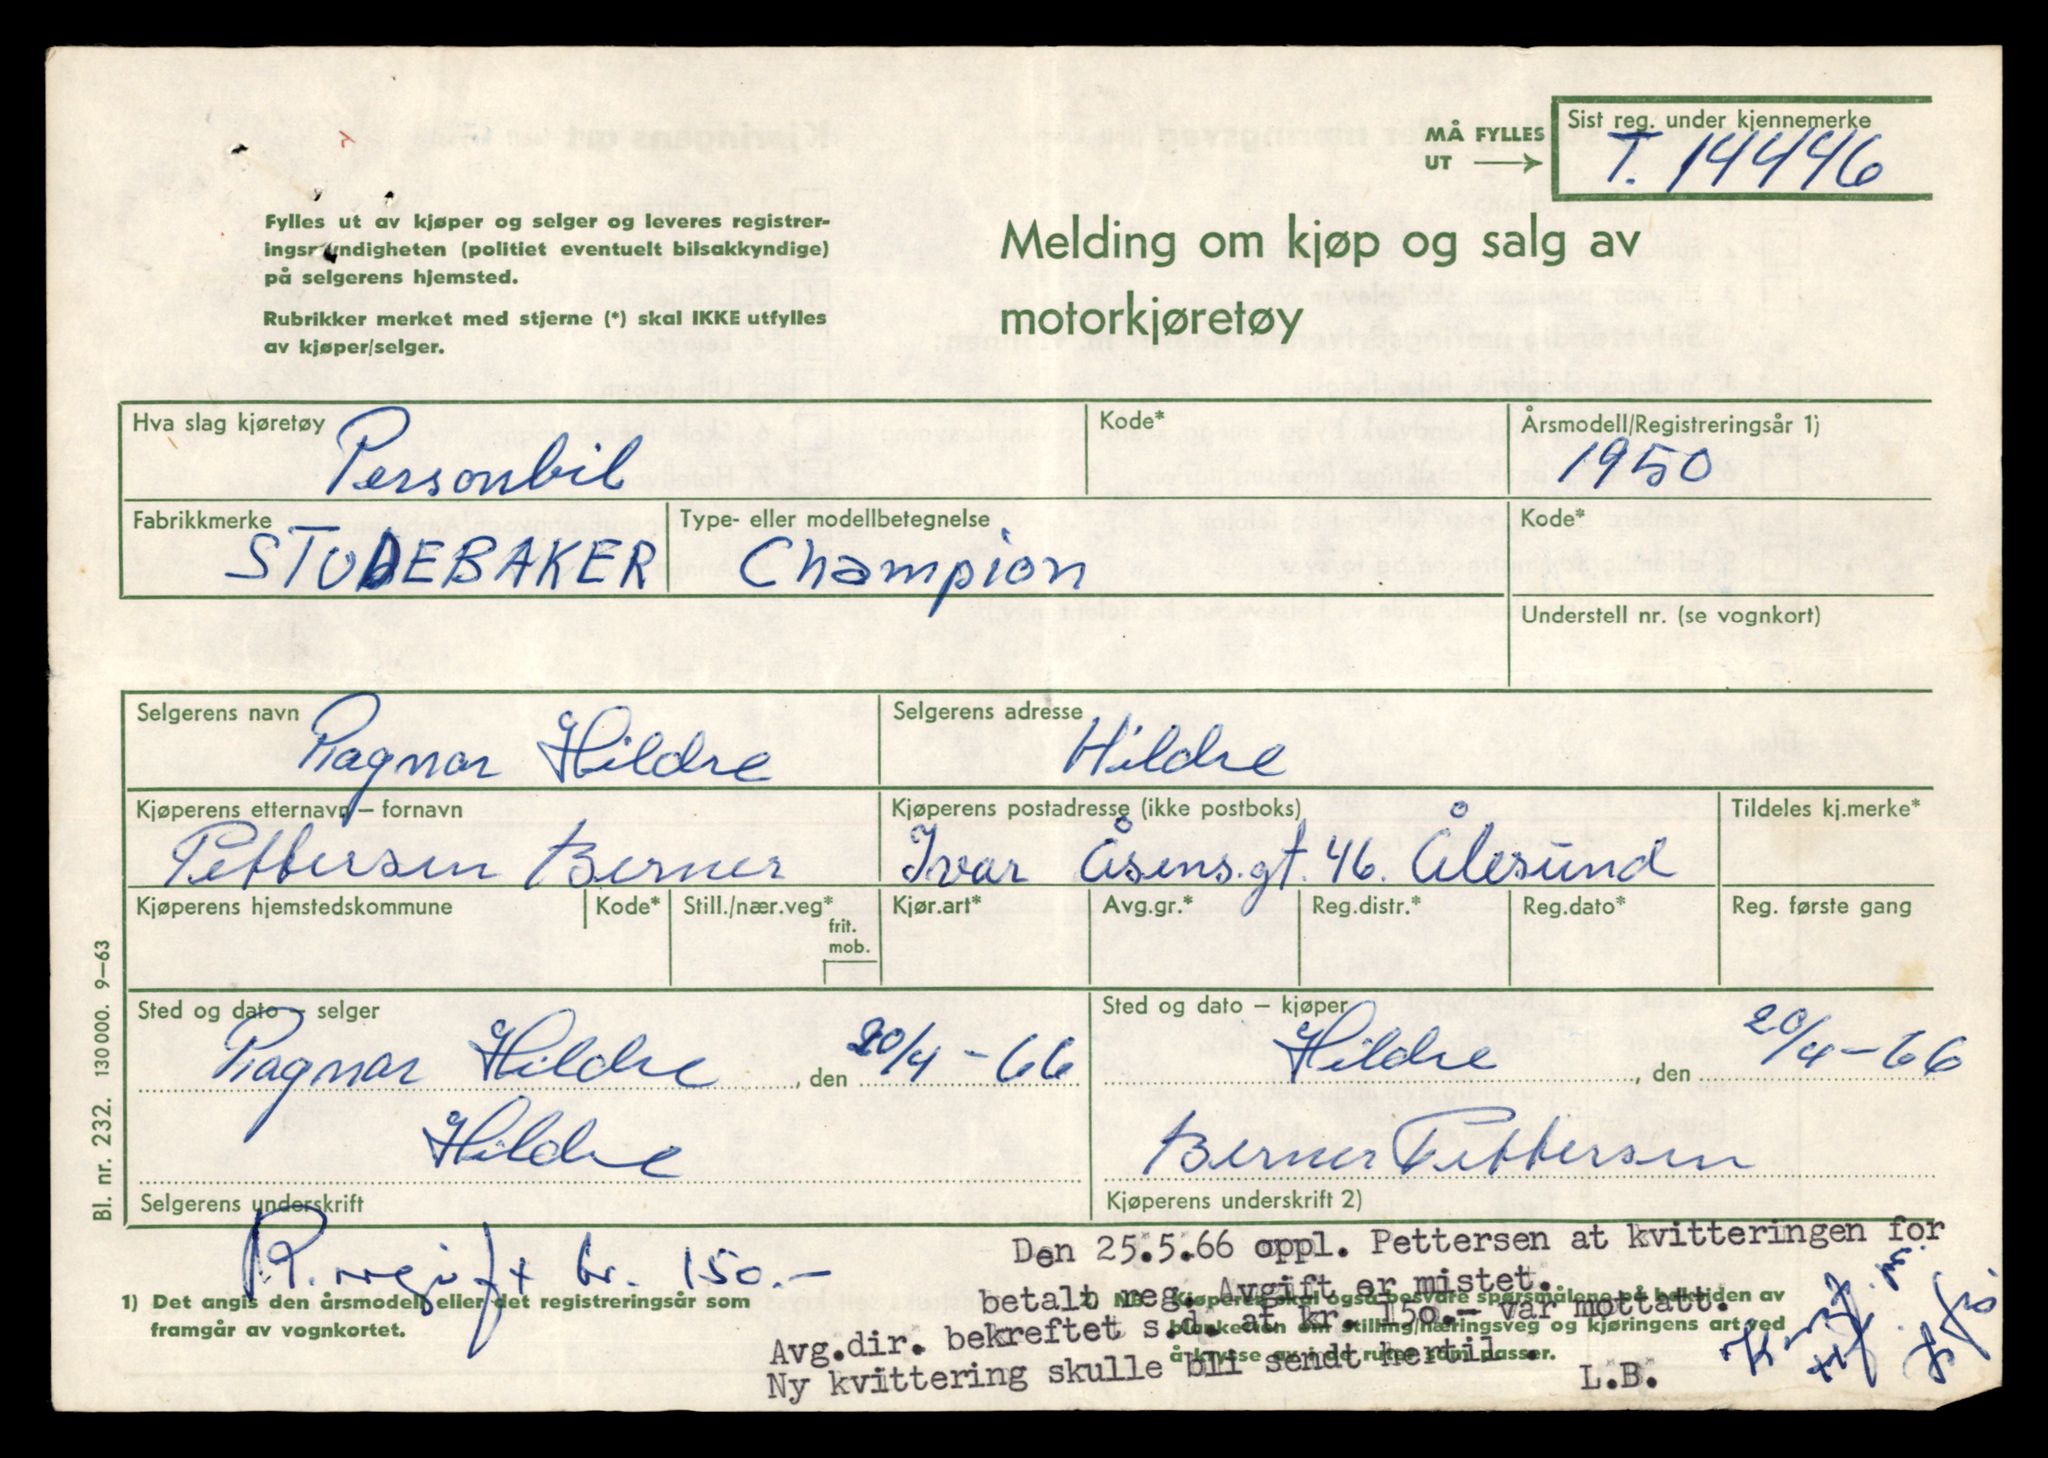 MÅ FYLLES
UT
Sist reg. under kjennemerke
T. 14446
Fylles ut av kjøper og selger og leveres registrer-
ingsmyndigheten (politiet eventuelt bilsakkyndige)
på selgerens hjemsted.
Rubrikker merket med stjerne (*) skal IKKE utfylles
av kjøper/selger.
Melding om kjøp og salg av
motorkjøretøy
Hva slag kjøretøy
Personbil
Kode*
Årsmodell/Registreringsår 1)
1950
Fabrikkmerke
STUDEBAKER
Type- eller modellbetegnelse
Champion
Kode*
Understell nr. (se vognkort)
Selgerens navn
Ragnar Hildre
Selgerens adresse
Hildre
Kjøperens etternavn – fornavn
Pettersen Berner
Kjøperens postadresse (ikke postboks)
Ivar Åsens.gt. 46. Ålesund
Tildeles kj.merke*
Kjøperens hjemstedskommune
Kode*
Still./nær.veg*
frit.
mob.
Kjør.art*
Avg.gr.*
Reg.distr.*
Reg.dato*
Reg. første gang
Sted og dato – selger
Ragnar Hildre, den 20/4-66
Hildre
Selgerens underskrift
Sted og dato – kjøper
Hildre, den 20/4-66
Berner Pettersen
Kjøperens underskrift 2)
Bl. nr. 232. 130000. 9–63
R. avgift kr. 150.-
1) Det angis den årsmodell eller det registreringsår som
framgår av vognkortet.
Kjøperen skal også besvare spørsmålene på baksiden av
blanketten om stilling/næringsveg og kjøringens art ved
å krysse av i de ruter som passer.
Den 25.5.66 oppl. Pettersen at kvitteringen for
betalt reg. Avgift er mistet.
Avg.dir. bekreftet s.d. at kr. 150.- var mottatt.
Ny kvittering skulle bli sendt hertil.
L.B.